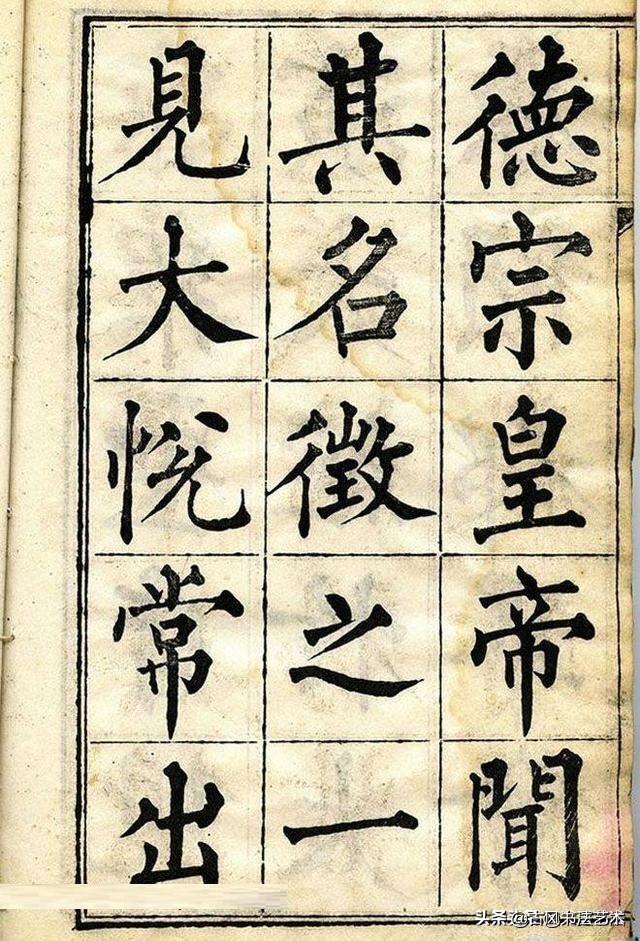 德宗皇帝聞
其名徵之一
見大悅常出
头条@古风书法艺术